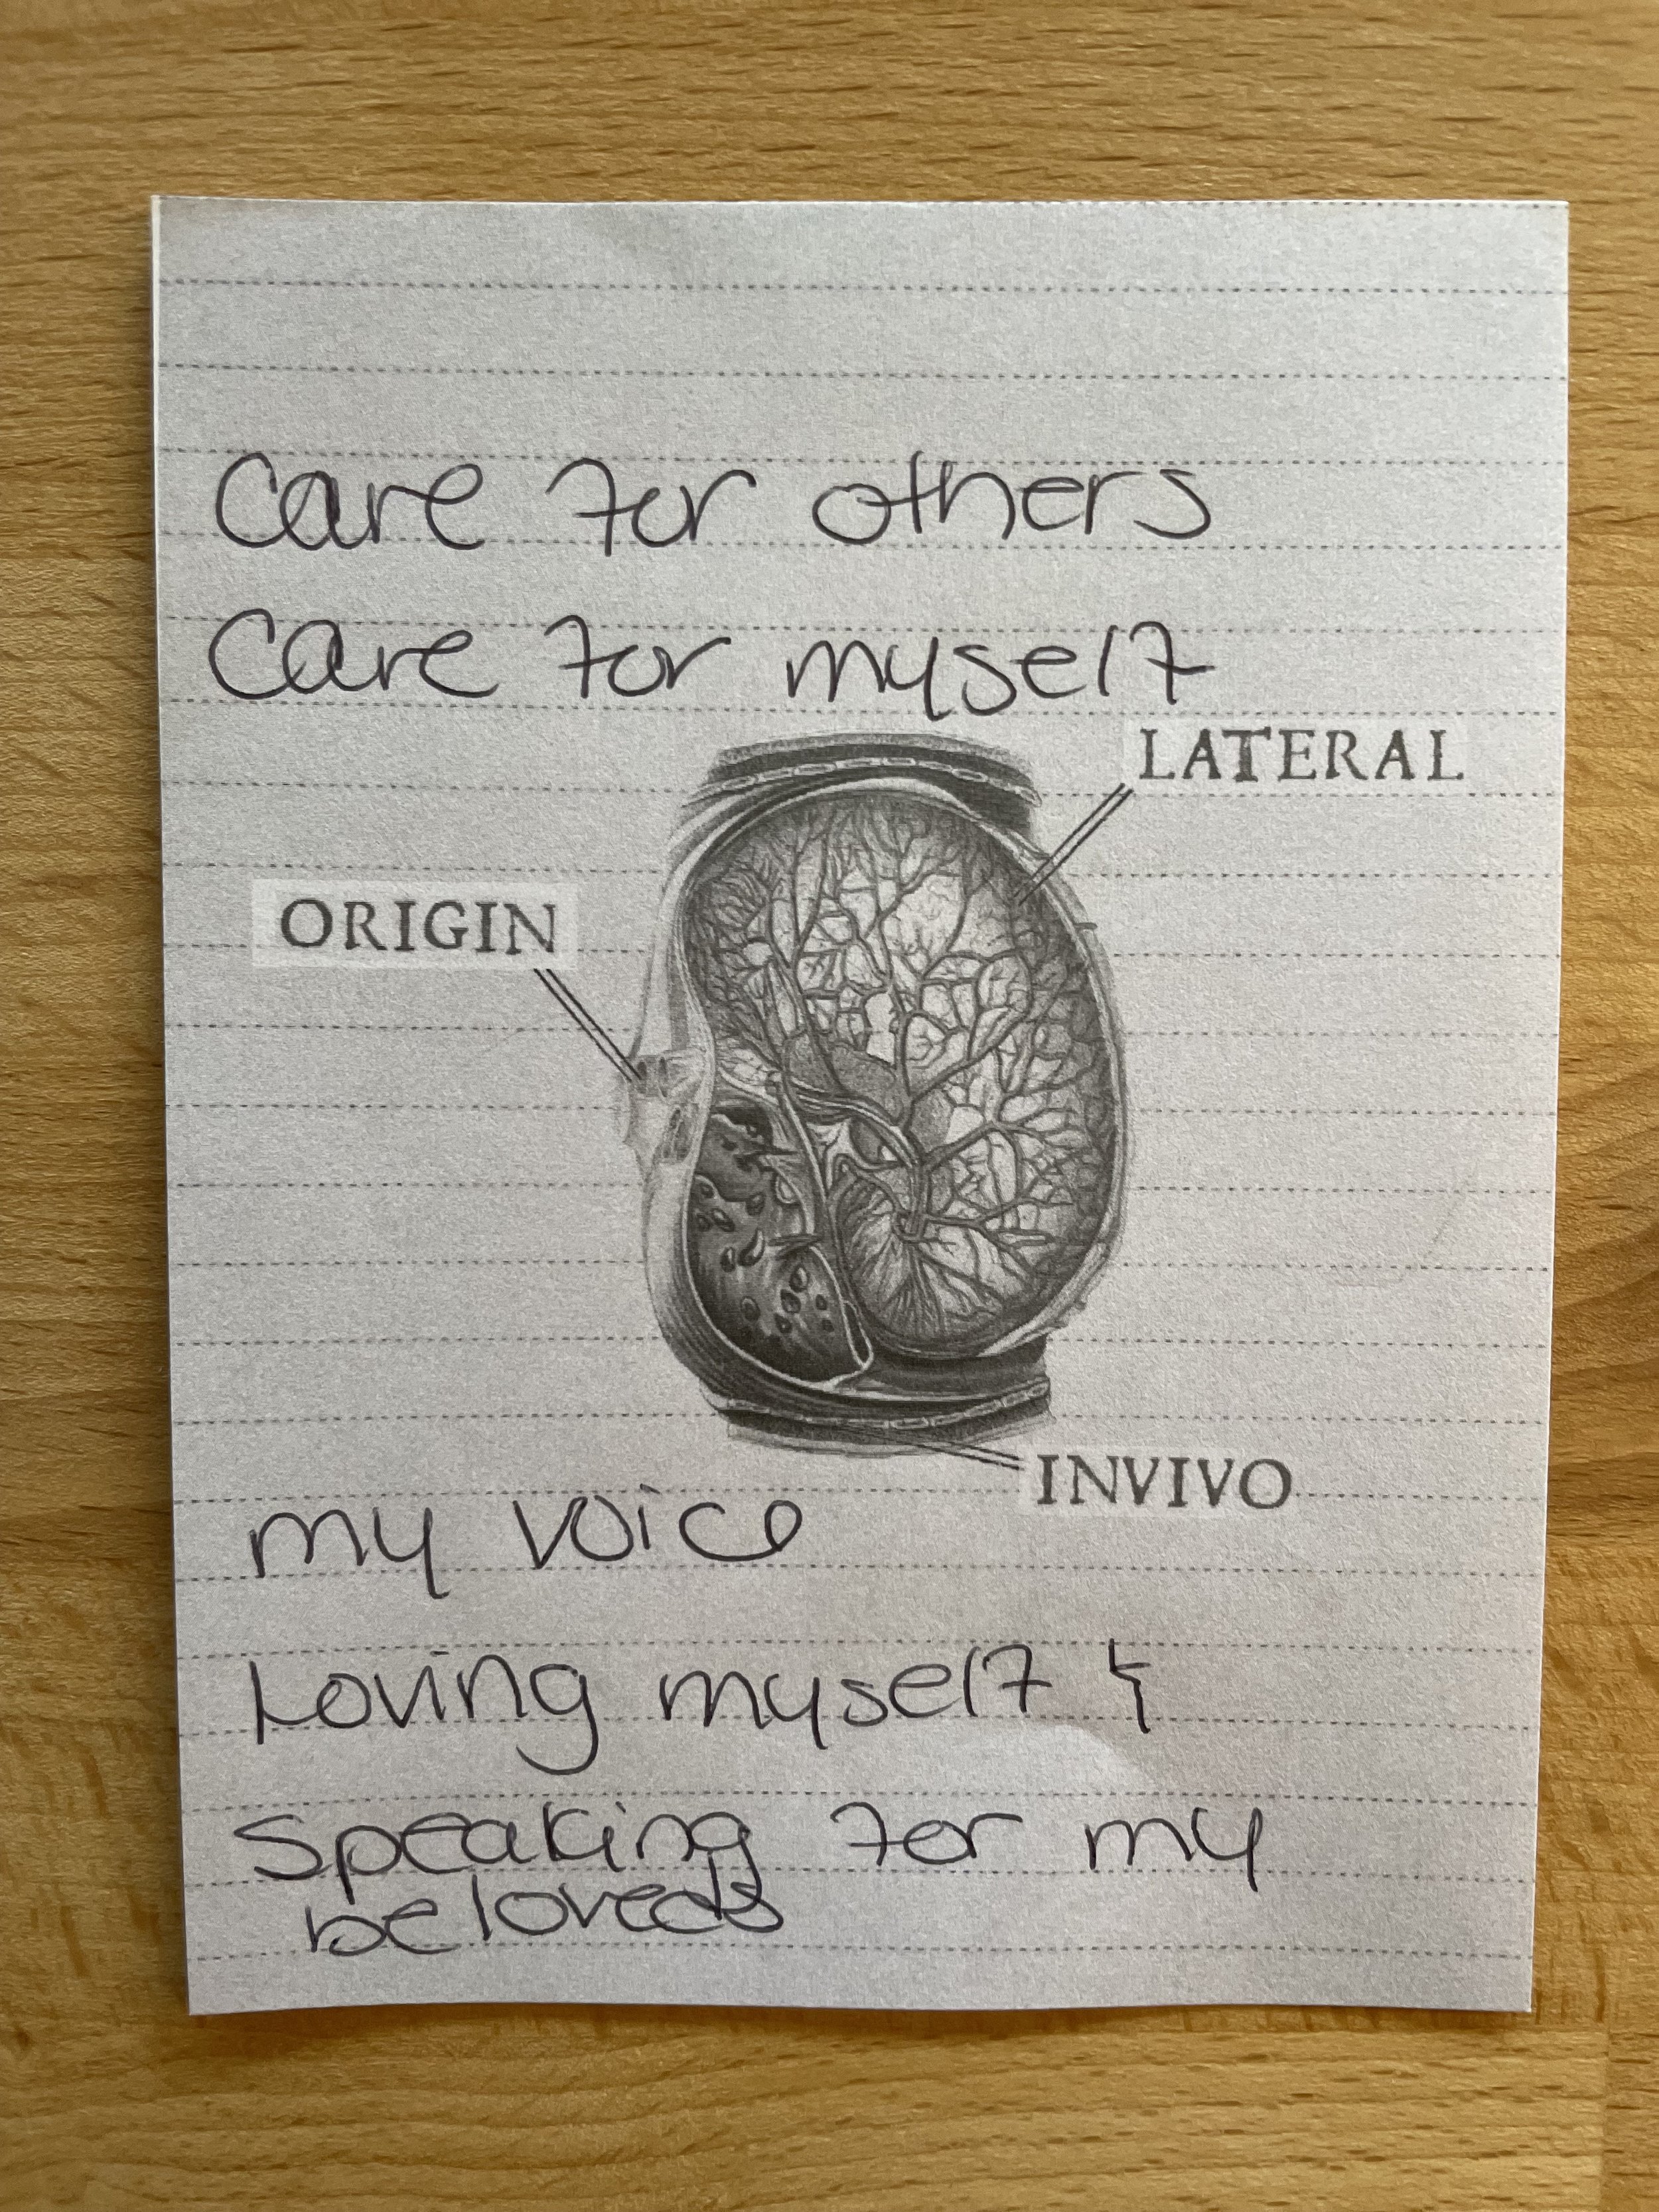 Care for others
Care for myself
LATERAL
ORIGIN
INVIVO
my voice
Loving myself &
Speaking for my
beloveds